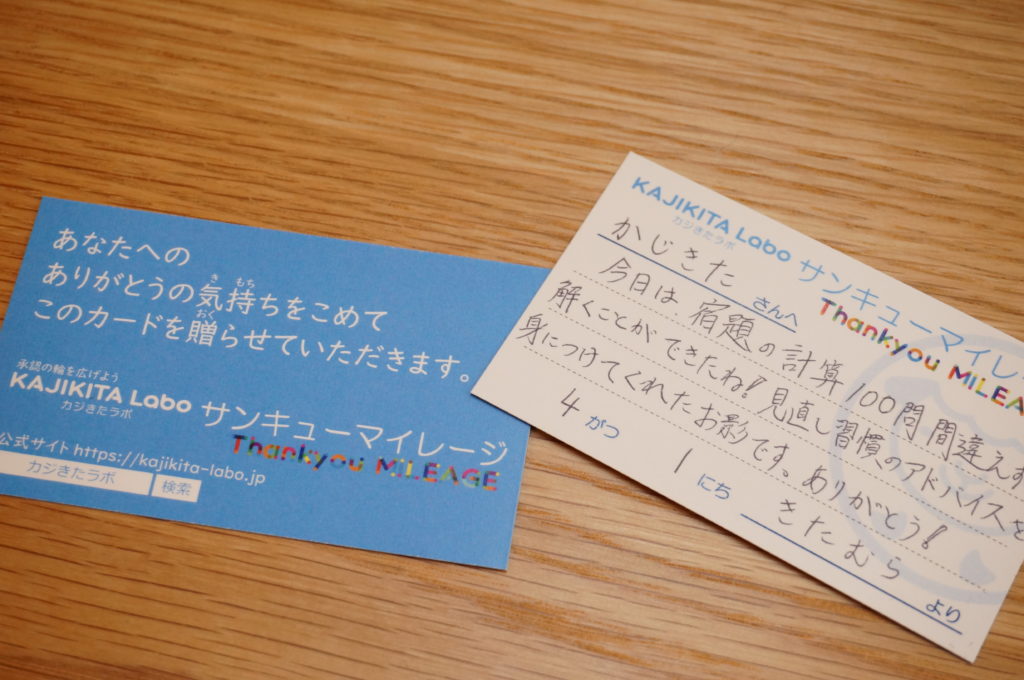 あなたへの
ありがとうの気持ちをこめて
このカードを贈らせていただきます。
き もち
おく
承認の輪を広げよう
KAJIKITA Labo
カジきたラボ
サンキューマイレージ
Thankyou MILEAGE
公式サイト https://kajikita-labo.jp
カジきたラボ 検索
KAJIKITA Labo
カジきたラボ
サンキューマイレー
Thankyou MILEA
かじきた さんへ
今日は、宿題の計算100問間違えず
解くことができたね!見直し習慣のアドバイスを
身につけてくれたお影です。ありがとう!
4 がつ 1 にち きたむら より